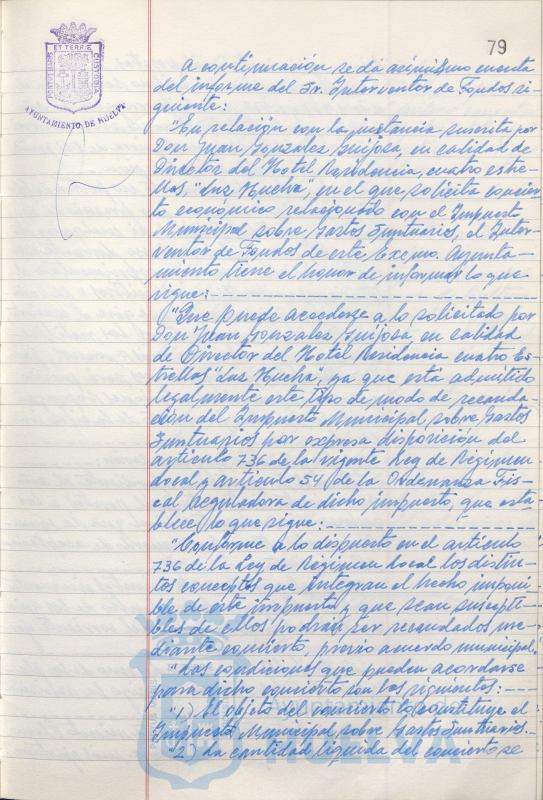 79
ET TERRÆ CUSTODIA
AYUNTAMIENTO DE HUELVA
A continuación se dá asimismo cuenta
del informe del Sr. Interventor de Fondos si-
guiente:
"En relación con la instancia suscrita por
Don Juan Gonzalez Guijosa, en calidad de
Director del Hotel Residencia, cuatro estre-
llas, "Luz Huelva", en el que solicita concier-
to económico relacionado con el Impuesto
Municipal sobre Gastos Suntuarios, el Inter-
ventor de Fondos de este Excmo. Ayunta-
miento tiene el honor de informar lo que
sigue:
"Que puede accederse a lo solicitado por
Don Juan Gonzalez Guijosa en calidad
de Director del Hotel Residencia cuatro Es-
trellas "Luz Huelva", ya que está admitido
legalmente este tipo de modo de recauda-
ción del Impuesto Municipal sobre Gastos
Suntuarios por expresa disposición del
artículo 736 de la vigente Ley de Régimen
Local y artículo 54 de la Ordenanza Fis-
cal Reguladora de dicho impuesto, que esta-
blece lo que sigue:
"Conforme a lo dispuesto en el artículo
736 de la Ley de Régimen Local los distin-
tos conceptos que integran el hecho imponi-
ble de este impuesto y que sean suscepti-
bles de ellos podrán ser recaudados me-
diante concierto, previo acuerdo municipal.
"Las condiciones que pueden acordarse
para dicho concierto son las siguientes:
"1) El objeto del concierto lo constituye el
Impuesto Municipal sobre Gastos Suntuarios.-
"2) La cantidad líquida del concierto se
HUELVA